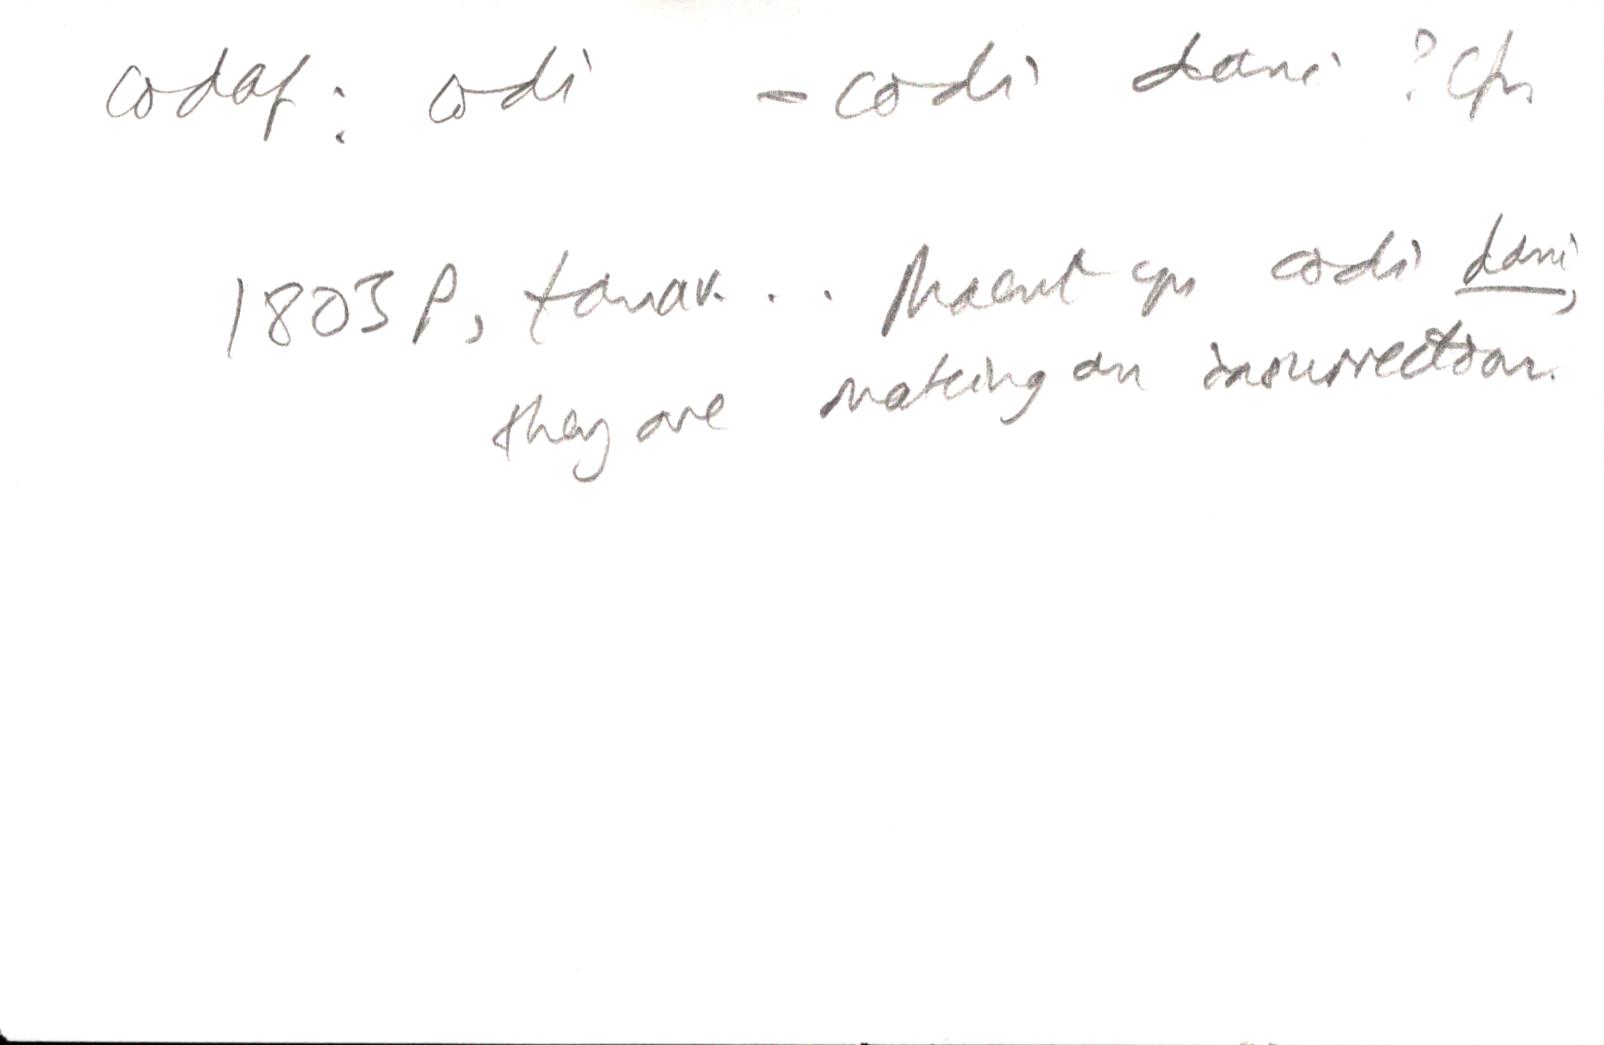 codaf: codi - codi tani ? cfn
1803 P, tanav. .. Maent yn codi tani,
they are making an insurrection.